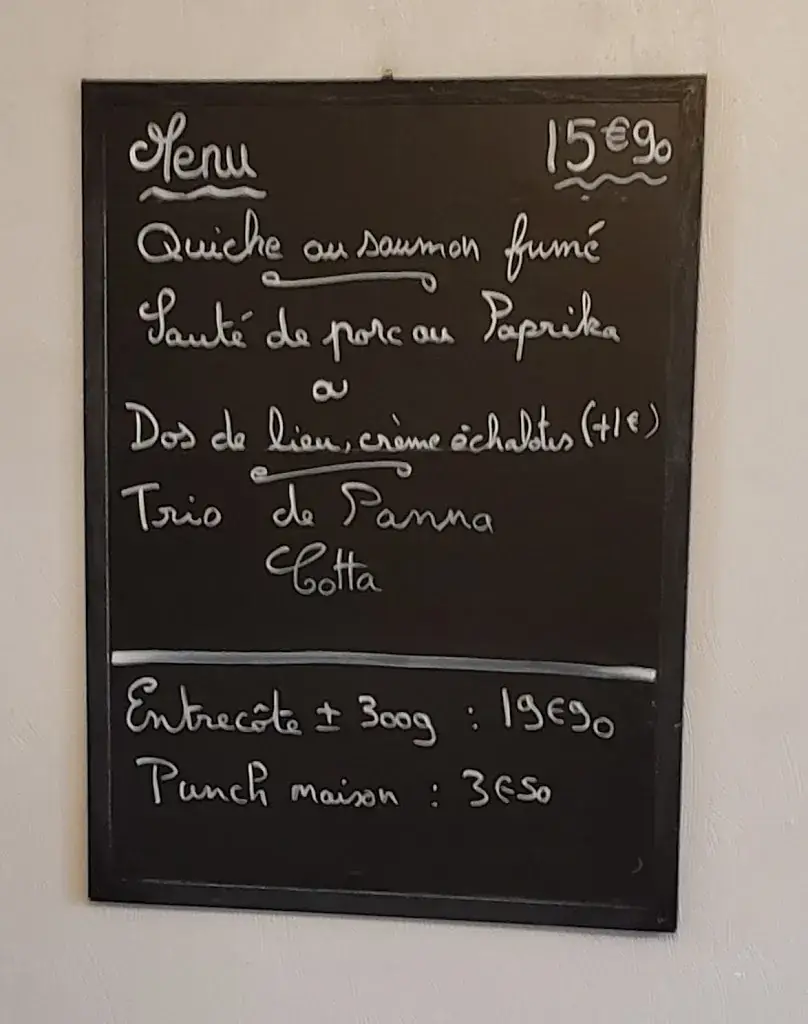 Menu 15€90
Quiche au saumon fumé
Sauté de porc au Paprika
ou
Dos de lieu, crème échalotes (+1€)
Trio de Panna
Cotta
Entrecôte ± 300g : 19€90
Punch maison : 3€50